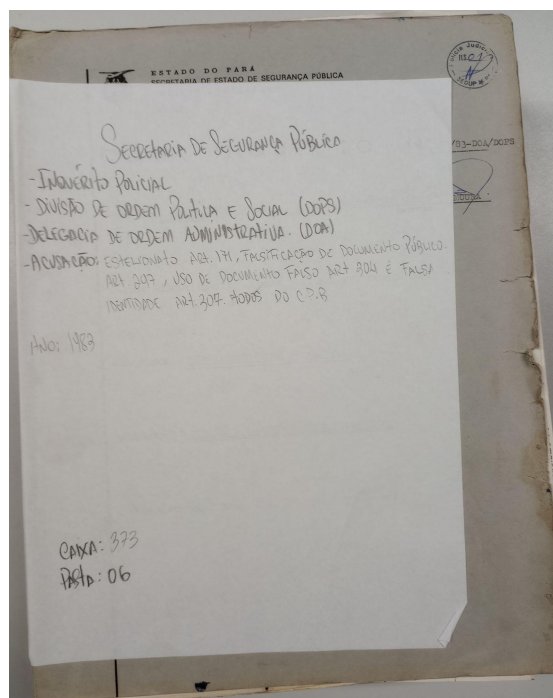 ESTADO DO PARÁ
SECRETARIA DE ESTADO DE SEGURANÇA PÚBLICA
/83-DOA/DOPS
SECRETARIA DE SEGURANÇA PÚBLICA
- INQUÉRITO POLICIAL
- DIVISÃO DE ORDEM POLÍTICA E SOCIAL (DOPS)
- DELEGACIA DE ORDEM ADMINISTRATIVA. (DOA)
- ACUSAÇÃO: ESTELIONATO ART. 171, FALSIFICAÇÃO DE DOCUMENTO PÚBLICO.
ART 297, USO DE DOCUMENTO FALSO ART 304 E FALSA
IDENTIDADE ART. 307. TODOS DO C.P.B
ANO: 1983
CAIXA: 373
PASTA: 06